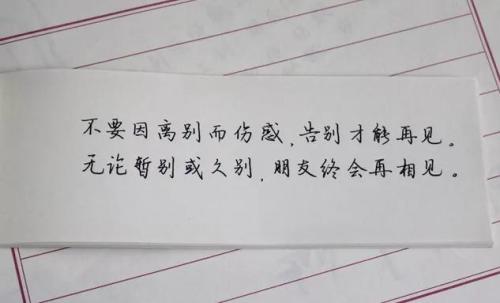 不要因离别而伤感,告别才能再见。
无论暂别或久别,朋友终会再相见。